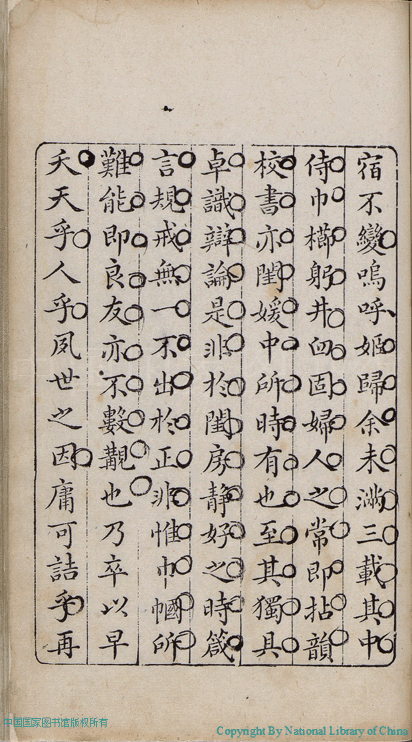 宿不變嗚呼姬歸余未滿三載其中
侍巾櫛躬井臼固婦人之常即拈韻
校書亦閨媛中所時有也至其獨具
卓識辯論是非於閨房靜好之時箴
言規戒無一不出於正非惟巾幗所
難能即良友亦不數覯也乃卒以早
夭天乎人乎夙世之因庸可詰乎再
中国国家图书馆版权所有
Copyright By National Library of China